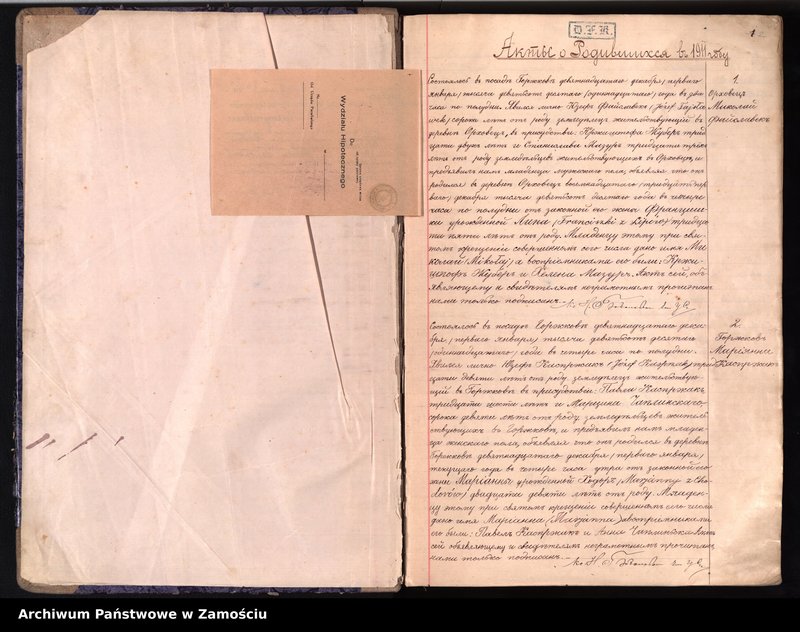 1
Акты о Родившихся въ 1911 году
1.
Орховецъ
Миколай
Состоялось въ посадѣ Горжковъ девятнадцатаго декабря /перваго
января/ тысяча девятьсотъ десятаго /одиннадцатаго/ года въ два
часа по полудни. Явился лично Юзефъ
сорока лѣтъ отъ роду земледѣлецъ жительствующій въ
деревнѣ Орховецъ, въ присутствіи: Кржиштофа
цати двухъ лѣтъ и Станислава Мазуръ тридцати трехъ
лѣтъ отъ роду земледѣльцевъ жительствующихъ въ Орховецъ, и
предъявилъ намъ младенца мужескаго пола, объявляя что онъ
родился въ деревнѣ Орховецъ восемнадцатаго /тридцать пер
ваго/ декабря тысяча девятьсотъ десятаго года въ четыре
часа по полудни отъ законной его жены Францишки
урожденной /Franciszki z
ти пяти лѣтъ отъ роду. Младенцу этому при свя-
томъ крещеніи совершенномъ сего числа дано имя Ми
колай /Mikołaj/ а воспріемниками его были: Кржи-
штофъ и Хелена Мазуръ. Актъ сей, объ
являющему и свидѣтелямъ неграмотнымъ прочитанъ
нами только подписанъ.
2.
Горжковъ
Маріанна
Каспржакъ
Состоялось въ посадѣ Горжковъ девятнадцатаго дека-
бря /перваго января/ тысяча девятьсотъ десятаго
/одиннадцатаго/ года въ четыре часа по полудни.
Явился лично Юзефъ Каспржакъ /Józef Kasprzak/ три
дцати девяти лѣтъ отъ роду земледѣлецъ жительствую-
щій въ Горжковѣ въ присутствіи: Павла Каспржакъ
тридцати шести лѣтъ и Марцина Чаплинскаго
сорока девяти лѣтъ отъ роду земледѣльцевъ житель-
ствующихъ въ Горжковѣ, и предъявилъ намъ младен-
ца женскаго пола, объявляя что онъ родился въ деревнѣ
Горжковъ девятнадцатаго декабря /перваго января/
текущаго года въ четыре часа утра отъ законной его
жены Маріанны урожденной Ходоръ /Maryanny z Cho-
dorów/ двадцати девяти лѣтъ отъ роду. Младен-
цу этому при святомъ крещеніи совершенномъ сего числа
дано имя Маріанна /Maryanna/ а воспріемниками
его были: Павелъ Каспржакъ и Анна Чаплинска. Актъ
сей объявляющему и свидѣтелямъ неграмотнымъ прочитанъ
нами только подписанъ.
Do
Wydziału Hipotecznego
Od Urzędu Powiatowego
Archiwum Państwowe w Zamościu